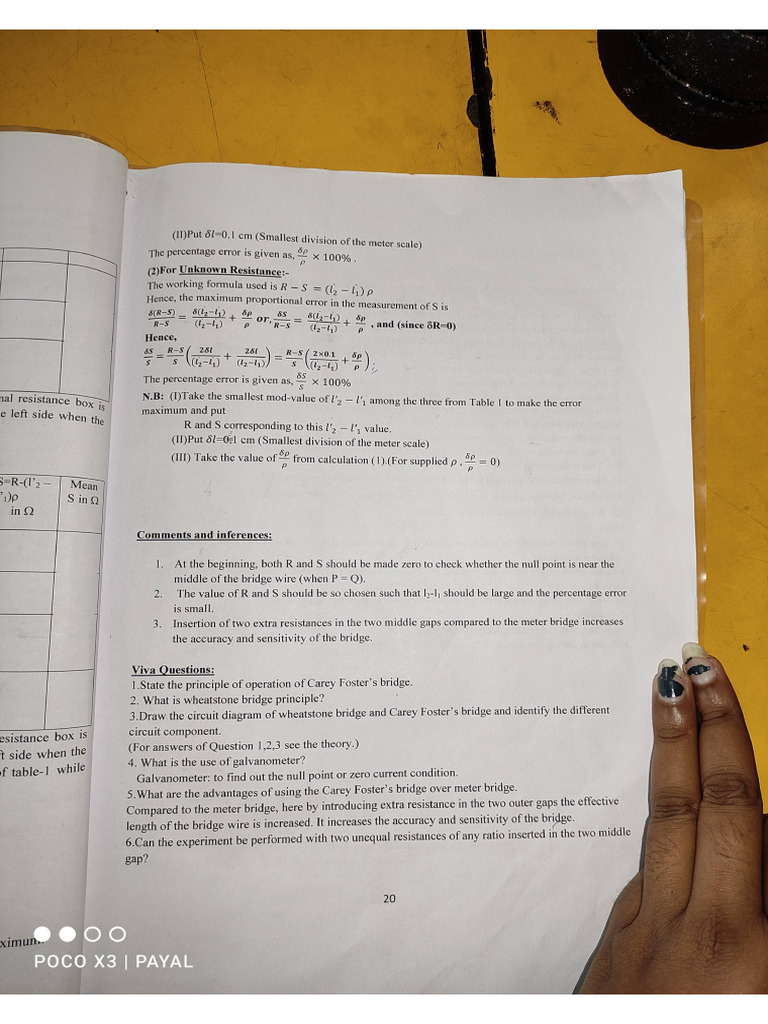 (II)Put δl=0.1 cm (Smallest division of the meter scale)
The percentage error is given as, δρ/ρ × 100% .
(2)For Unknown Resistance:-
The working formula used is R − S = (l₂′ − l₁′) ρ
Hence, the maximum proportional error in the measurement of S is
δ(R−S)/R−S = δ(l₂′−l₁′)/(l₂′−l₁′) + δρ/ρ or, δS/R−S = δ(l₂′−l₁′)/(l₂′−l₁′) + δρ/ρ , and (since δR=0)
Hence,
δS/S = R−S/S (2δl/(l₂′−l₁′) + 2δl/(l₂′−l₁′)) = R−S/S (2×0.1/(l₂′−l₁′) + δρ/ρ)
The percentage error is given as, δS/S × 100%
N.B: (I)Take the smallest mod-value of l′₂ − l′₁ among the three from Table 1 to make the error
maximum and put
R and S corresponding to this l′₂ − l′₁ value.
(II)Put δl=0.1 cm (Smallest division of the meter scale)
(III) Take the value of δρ/ρ from calculation (1).(For supplied ρ , δρ/ρ = 0)
Comments and inferences:
1. At the beginning, both R and S should be made zero to check whether the null point is near the
middle of the bridge wire (when P = Q).
2. The value of R and S should be so chosen such that l₂-l₁ should be large and the percentage error
is small.
3. Insertion of two extra resistances in the two middle gaps compared to the meter bridge increases
the accuracy and sensitivity of the bridge.
Viva Questions:
1.State the principle of operation of Carey Foster's bridge.
2. What is wheatstone bridge principle?
3.Draw the circuit diagram of wheatstone bridge and Carey Foster's bridge and identify the different
circuit component.
(For answers of Question 1,2,3 see the theory.)
4. What is the use of galvanometer?
Galvanometer: to find out the null point or zero current condition.
5.What are the advantages of using the Carey Foster's bridge over meter bridge.
Compared to the meter bridge, here by introducing extra resistance in the two outer gaps the effective
length of the bridge wire is increased. It increases the accuracy and sensitivity of the bridge.
6.Can the experiment be performed with two unequal resistances of any ratio inserted in the two middle
gap?
20
resistance box is
e left side when the
S=R-(l'₂ −
'₁)ρ
in Ω
Mean
S in Ω
esistance box is
ft side when the
of table-1 while
ximum.
POCO X3 | PAYAL